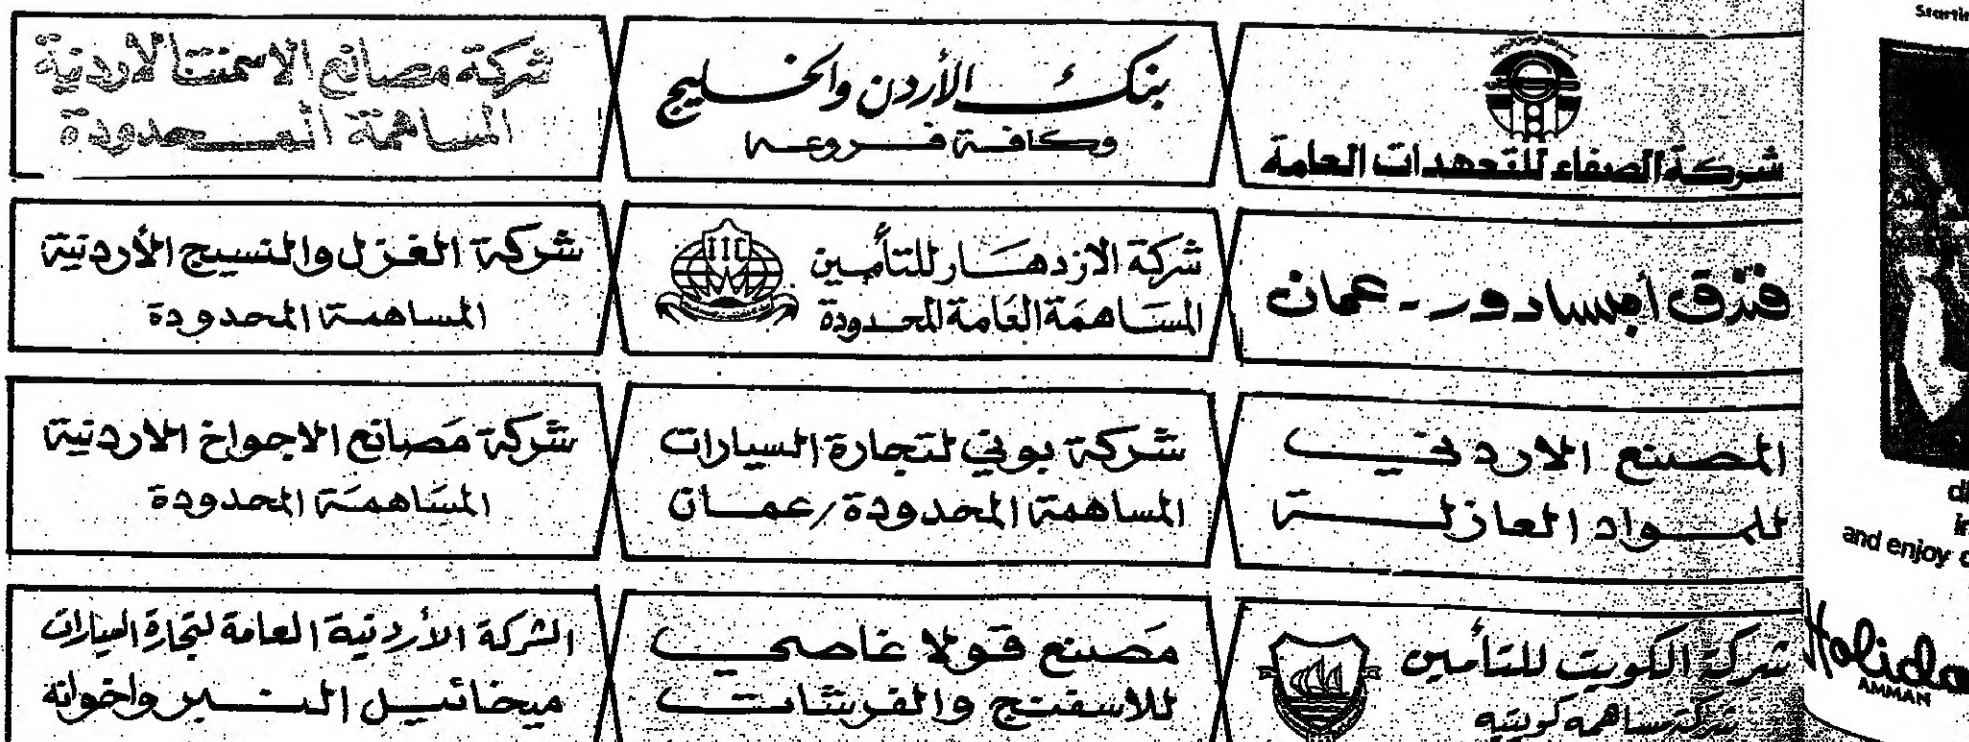 شركة الصفاء للتعهدات العامة
بنك الأردن والخليج
وكافة فروعه
شركة مصانع الاسمنت الاردنية
المساهمة المحدودة
فندق أمبسادور - عمان
شركة الازدهار للتأمين
المساهمة العامة المحدودة
شركة الغزل والنسيج الأردنية
المساهمة المحدودة
المصنع الاردني
للمواد العازلة
شركة بوني لتجارة السيارات
المساهمة المحدودة / عمان
شركة مصانع الاجواخ الاردنية
المساهمة المحدودة
شركة الكويت للتأمين
شركة مساهمه كويتيه
مصنع قولا غاصي
للاسفنج والفرشات
الشركة الأردنية العامة لتجارة السيارات
ميخائيل النبر واخوانه
and enjoy
AMMAN